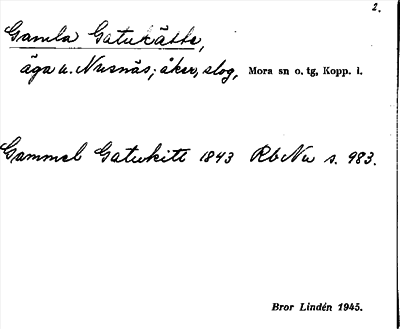 2.
Gamla Gatukätte,
äga u. Nusnäs; åker, slog, Mora sn o. tg, Kopp. l.
Gammel Gatukitt 1843 Rb Nu s. 983.
Bror Lindén 1945.